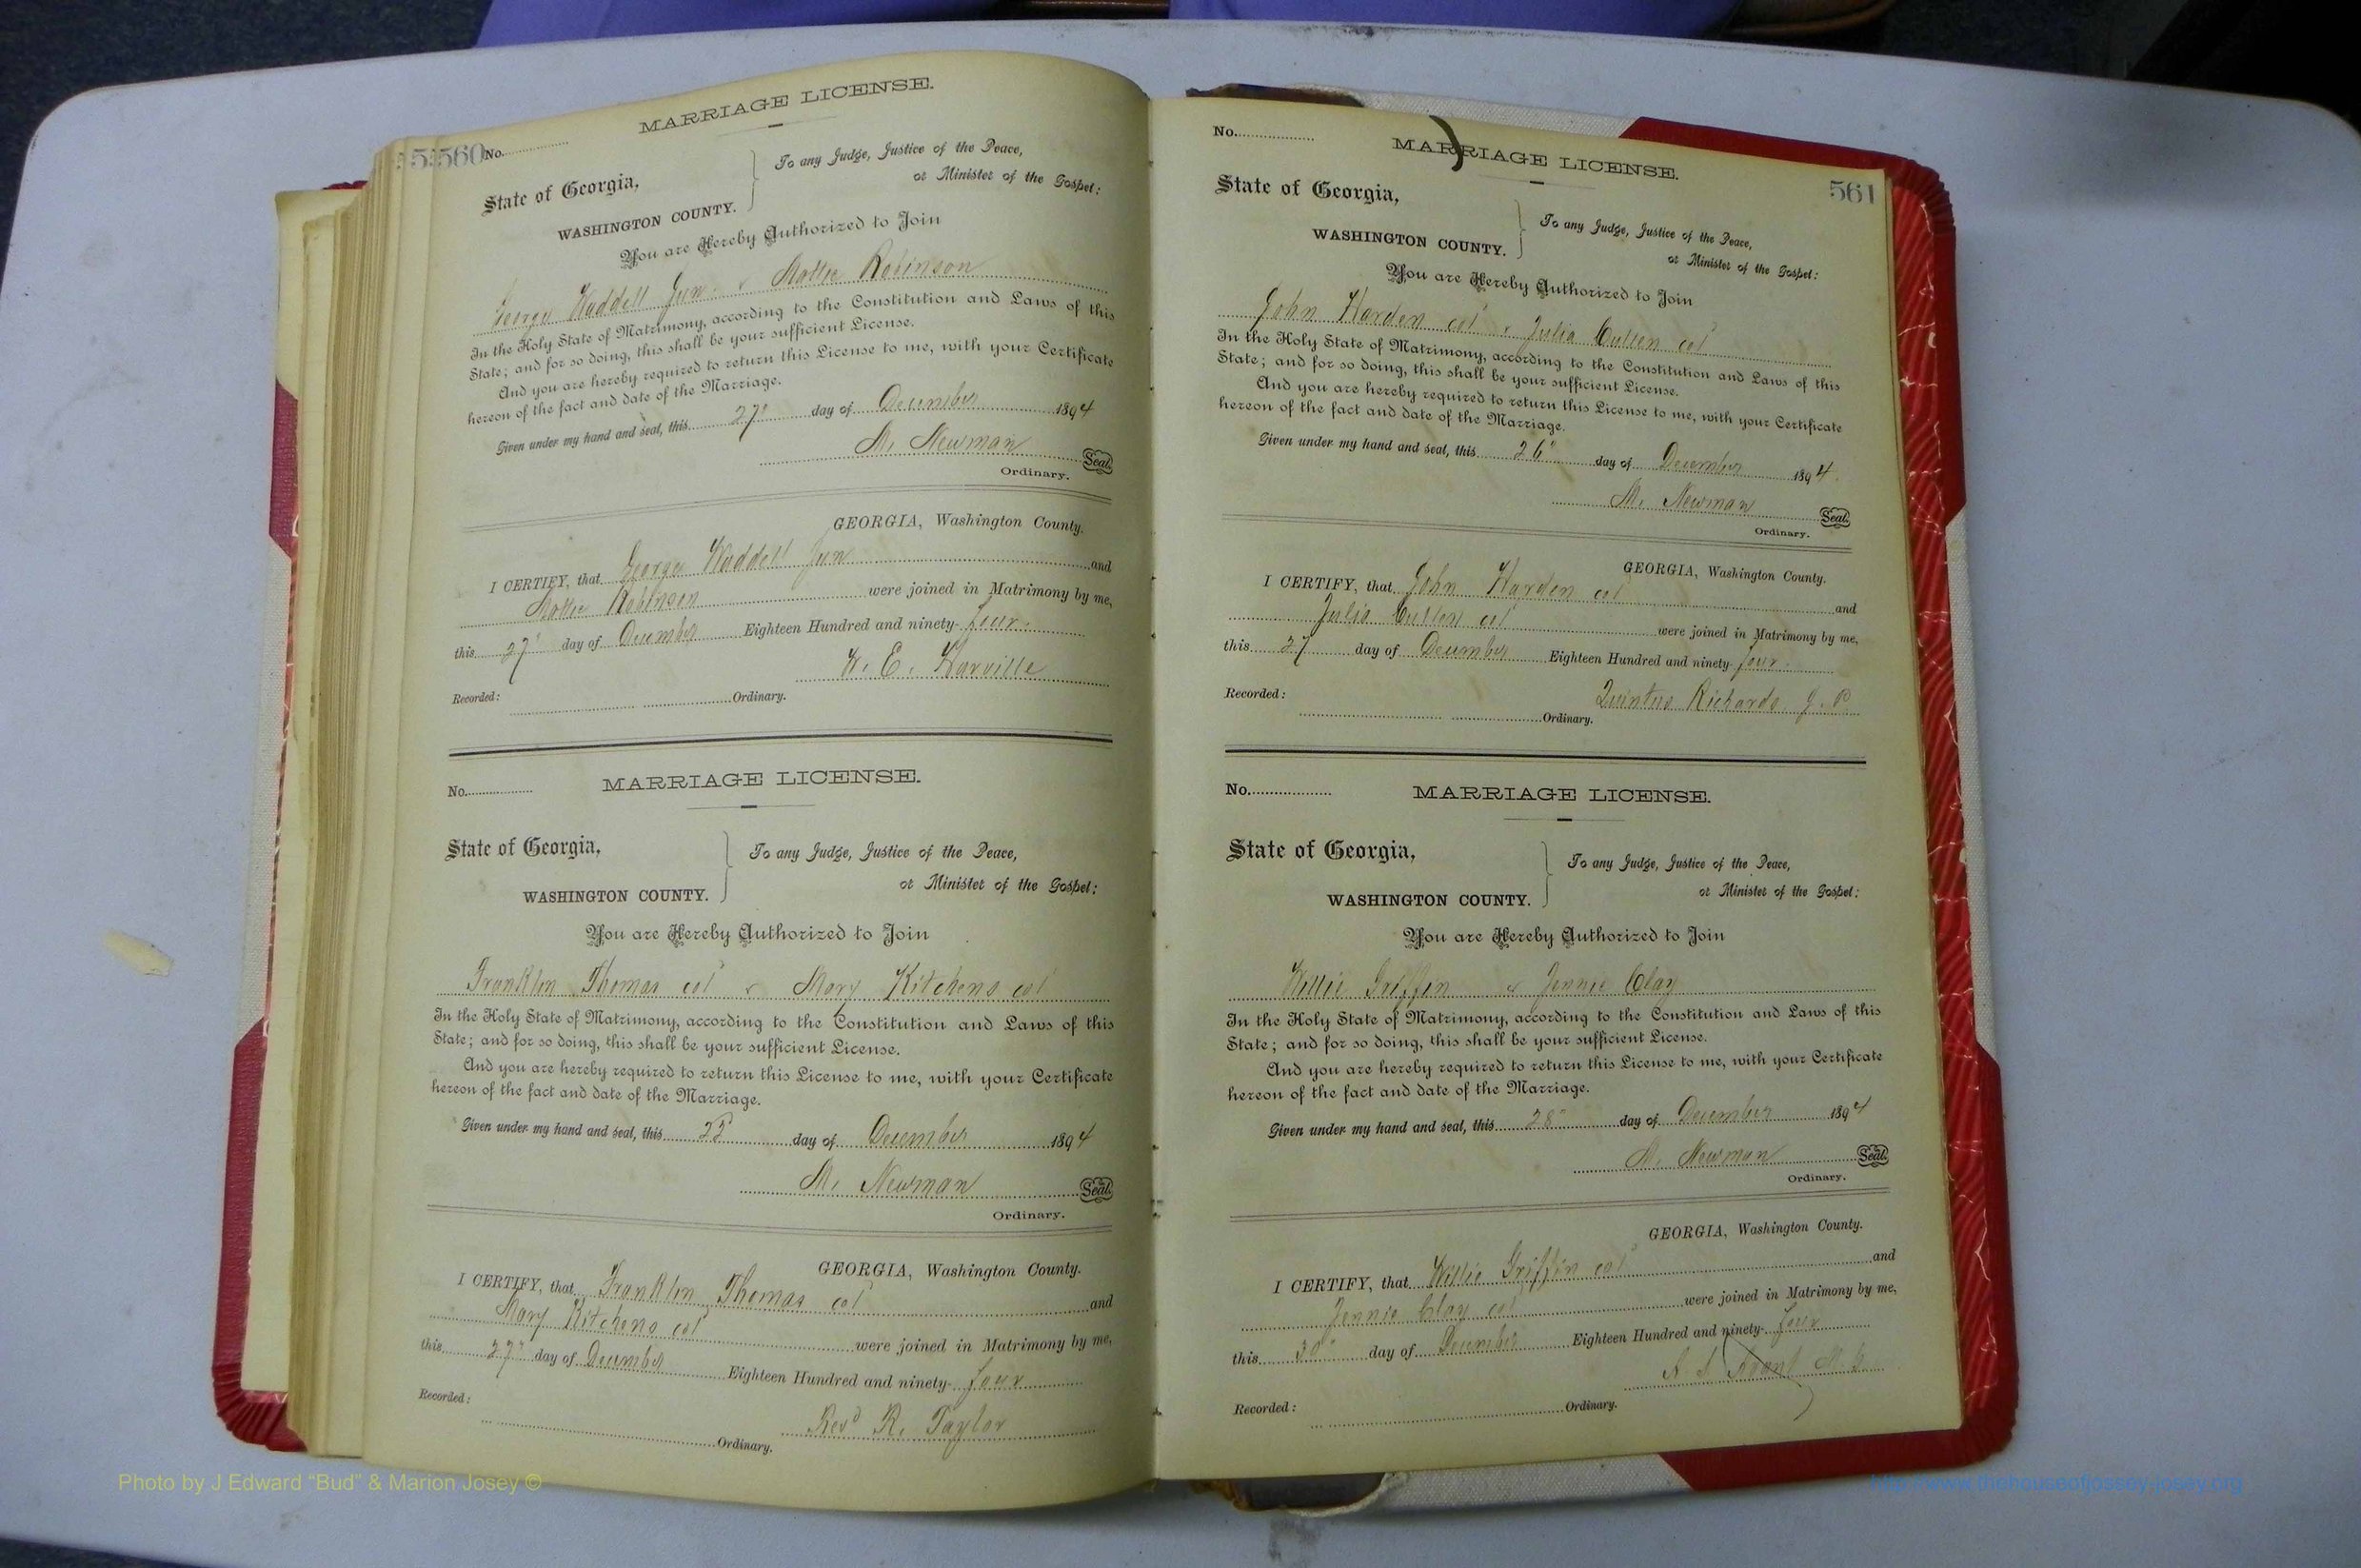 MARRIAGE LICENSE.
560 No.
State of Georgia,
WASHINGTON COUNTY.
To any Judge, Justice of the Peace,
or Minister of the Gospel:
You are Hereby Authorized to Join
George Waddell Jun. & Mollie Robinson
In the Holy State of Matrimony, according to the Constitution and Laws of this
State; and for so doing, this shall be your sufficient License.
And you are hereby required to return this License to me, with your Certificate
hereon of the fact and date of the Marriage.
Given under my hand and seal, this 27" day of December 1894
M. Newman Seal.
Ordinary.
GEORGIA, Washington County.
I CERTIFY, that George Waddell Jun and
Mollie Robinson were joined in Matrimony by me,
this 27" day of December Eighteen Hundred and ninety-four.
W. E. Harville
Recorded: Ordinary.
No. MARRIAGE LICENSE.
State of Georgia,
WASHINGTON COUNTY.
To any Judge, Justice of the Peace,
or Minister of the Gospel:
You are Hereby Authorized to Join
Franklin Thomas col & Mary Kitchens col
In the Holy State of Matrimony, according to the Constitution and Laws of this
State; and for so doing, this shall be your sufficient License.
And you are hereby required to return this License to me, with your Certificate
hereon of the fact and date of the Marriage.
Given under my hand and seal, this day of December 1894
M. Newman Seal.
Ordinary.
GEORGIA, Washington County.
I CERTIFY, that Franklin Thomas col and
Mary Kitchens col were joined in Matrimony by me,
this 27" day of December Eighteen Hundred and ninety-four
Revd R. Taylor
Recorded: Ordinary.
No. MARRIAGE LICENSE.
561
State of Georgia,
WASHINGTON COUNTY.
To any Judge, Justice of the Peace,
or Minister of the Gospel:
You are Hereby Authorized to Join
John Harden col & Julia Cullen col
In the Holy State of Matrimony, according to the Constitution and Laws of this
State; and for so doing, this shall be your sufficient License.
And you are hereby required to return this License to me, with your Certificate
hereon of the fact and date of the Marriage.
Given under my hand and seal, this 26" day of December 1894.
M. Newman Seal.
Ordinary.
GEORGIA, Washington County.
I CERTIFY, that John Harden col and
Julia Cullen col were joined in Matrimony by me,
this 27 day of December Eighteen Hundred and ninety-four.
Quintus Richards J. P.
Recorded: Ordinary.
No. MARRIAGE LICENSE.
State of Georgia,
WASHINGTON COUNTY.
To any Judge, Justice of the Peace,
or Minister of the Gospel:
You are Hereby Authorized to Join
Willie Griffin & Jennie Clay
In the Holy State of Matrimony, according to the Constitution and Laws of this
State; and for so doing, this shall be your sufficient License.
And you are hereby required to return this License to me, with your Certificate
hereon of the fact and date of the Marriage.
Given under my hand and seal, this 28" day of December 1894
M. Newman Seal.
Ordinary.
GEORGIA, Washington County.
I CERTIFY, that Willie Griffin col and
Jennie Clay col were joined in Matrimony by me,
this 30" day of December Eighteen Hundred and ninety-four
Recorded: Ordinary.
Photo by J Edward "Bud" & Marion Josey ©
http://www.thehouseofjossey-josey.org